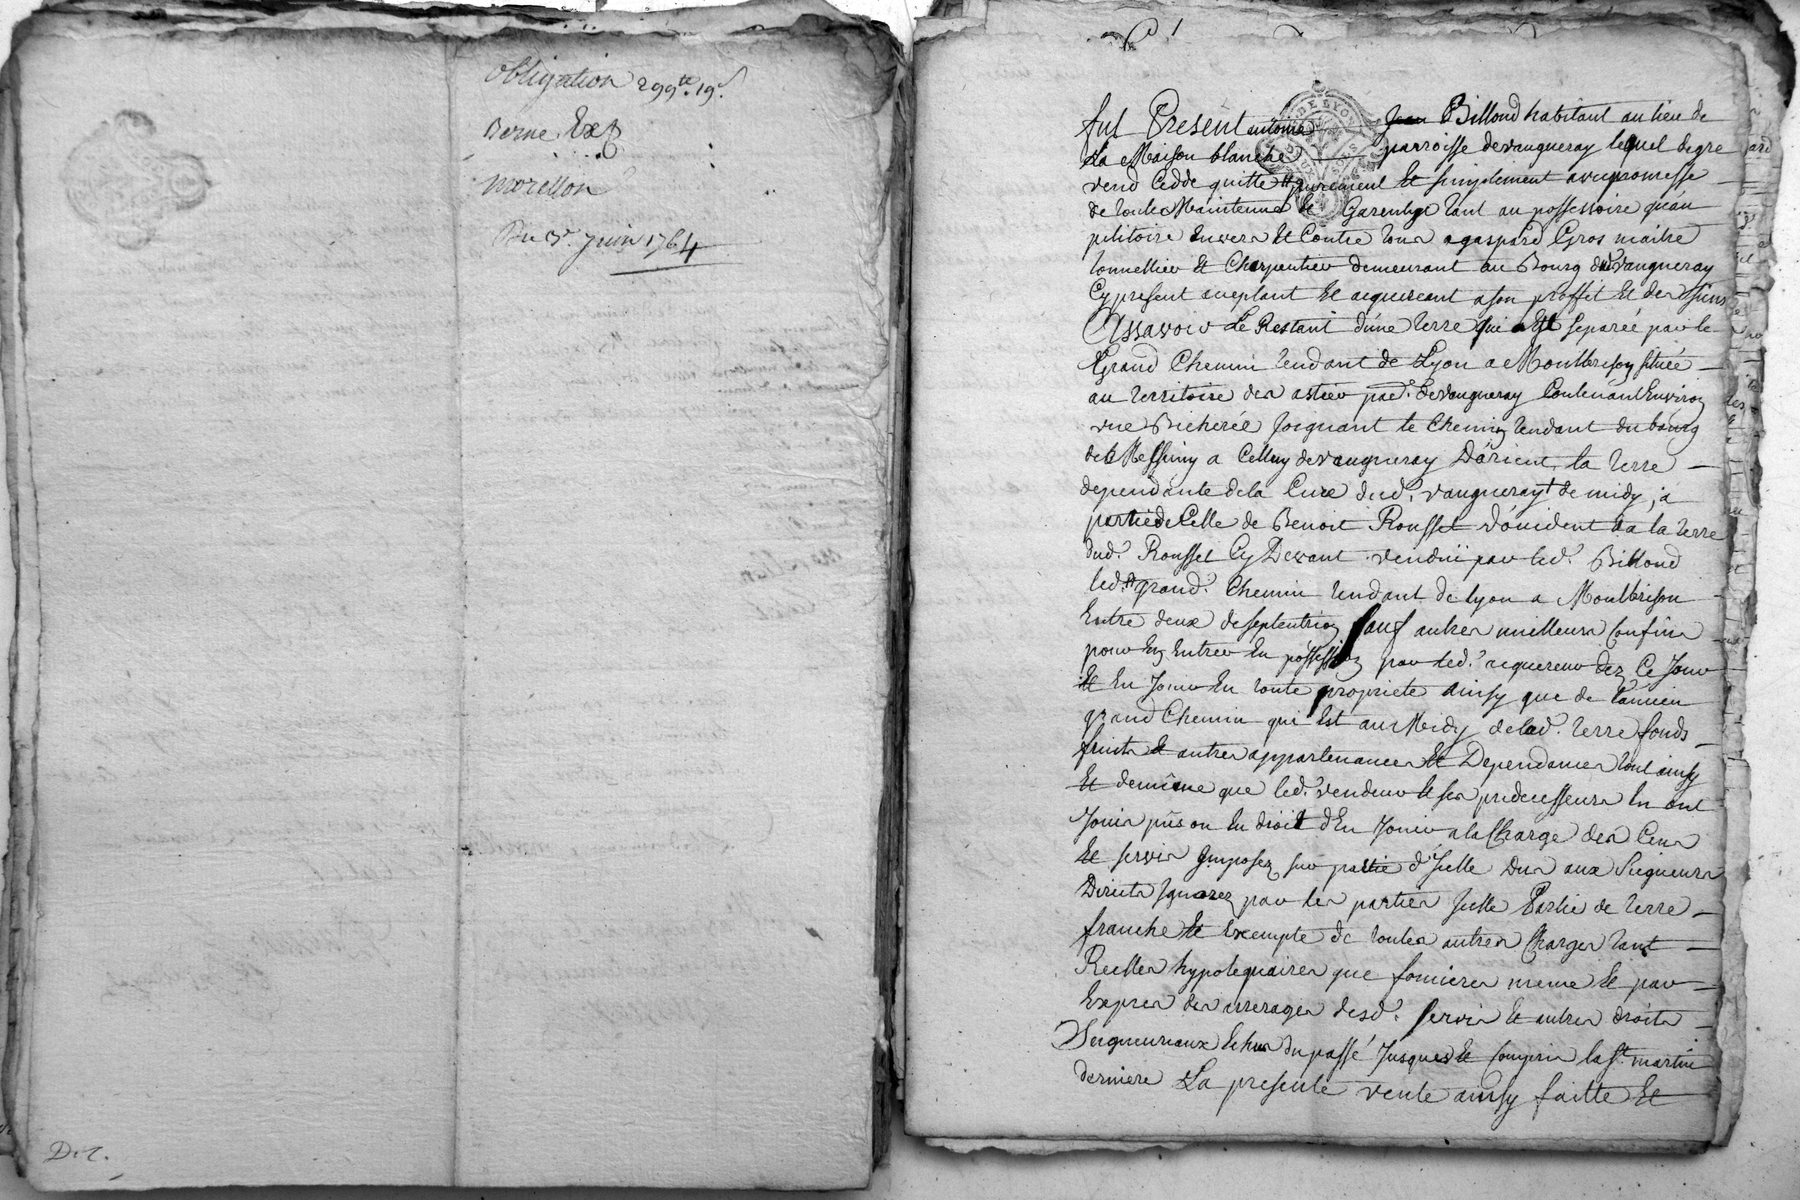 obligation 299ᵗᵗ. 19ˢ
Berne Exp
morellon
Du 3ᵉ. Juin 1764
D. r.
1
fut Present antoine Jean Billoud habitant au lieu de
La Maison blanche parroisse devaugneray lequel degre
vend Cedde quitte purement Et simplement avec promesse
de toutes Maintenue Et Garentye tant au possessoire quau
petitoire Envers Et Contre tous a gaspard Gros maitre
tonnellier Et Charpentier demeurant au Bourg dud vaugneray
Cy present aceptant Et aquereant a son proffit Et des siens
Assavoir Le Restant d'une terre qui Est separeé par le
Grand Chemin tendant de Lyon a Montbrison située
au territoire des astier parᵉ. devaugneray Contenant Environ
une Bicherée Joignant le Chemin tendant du bourg
de Messimy a Celluy devaugneray D'orient, la terre
dependante dela Cure dud. vaugneray de midy, a
partie de Celle de Benoit Rousset d'occident la terre
dudᵗ Rousset Cy Devant vendüe par ledᵗ Billoud
ledᵗ grand Chemin tendant de lyon a Montbrison
Entre deux de septentrion sauf autres meilleurs Confins
pour En Entrer En possession par ledᵗ aquereur dez Ce Jour
Et En Jouir En toute propriete ainsy que de l'ancien
grand Chemin qui Est au Midy de lad. terre fonds
fruits Et autres appartenances Et Dependances tout ainsy
Et demême que ledᵗ vendeur Et ses predecesseurs En ont
Jouis pûs ou En droit d'En Jouir a la Charge des Cens
Et servis Imposez sur partie d'Jcelle Dus aux Seigneurs
Directs Ignorez par les parties Jcelle Partie de terre
franche Et Exempte de toutes autres Charges tant
Reelles hypotequaires que foncieres meme Et par
Exprès des arrerages desdᵗ. servis Et autres droits
Seigneuriaux Echus du passé Jusques Et Compris la Sᵗ martin
derniere La presente vente ainsy faitte Et